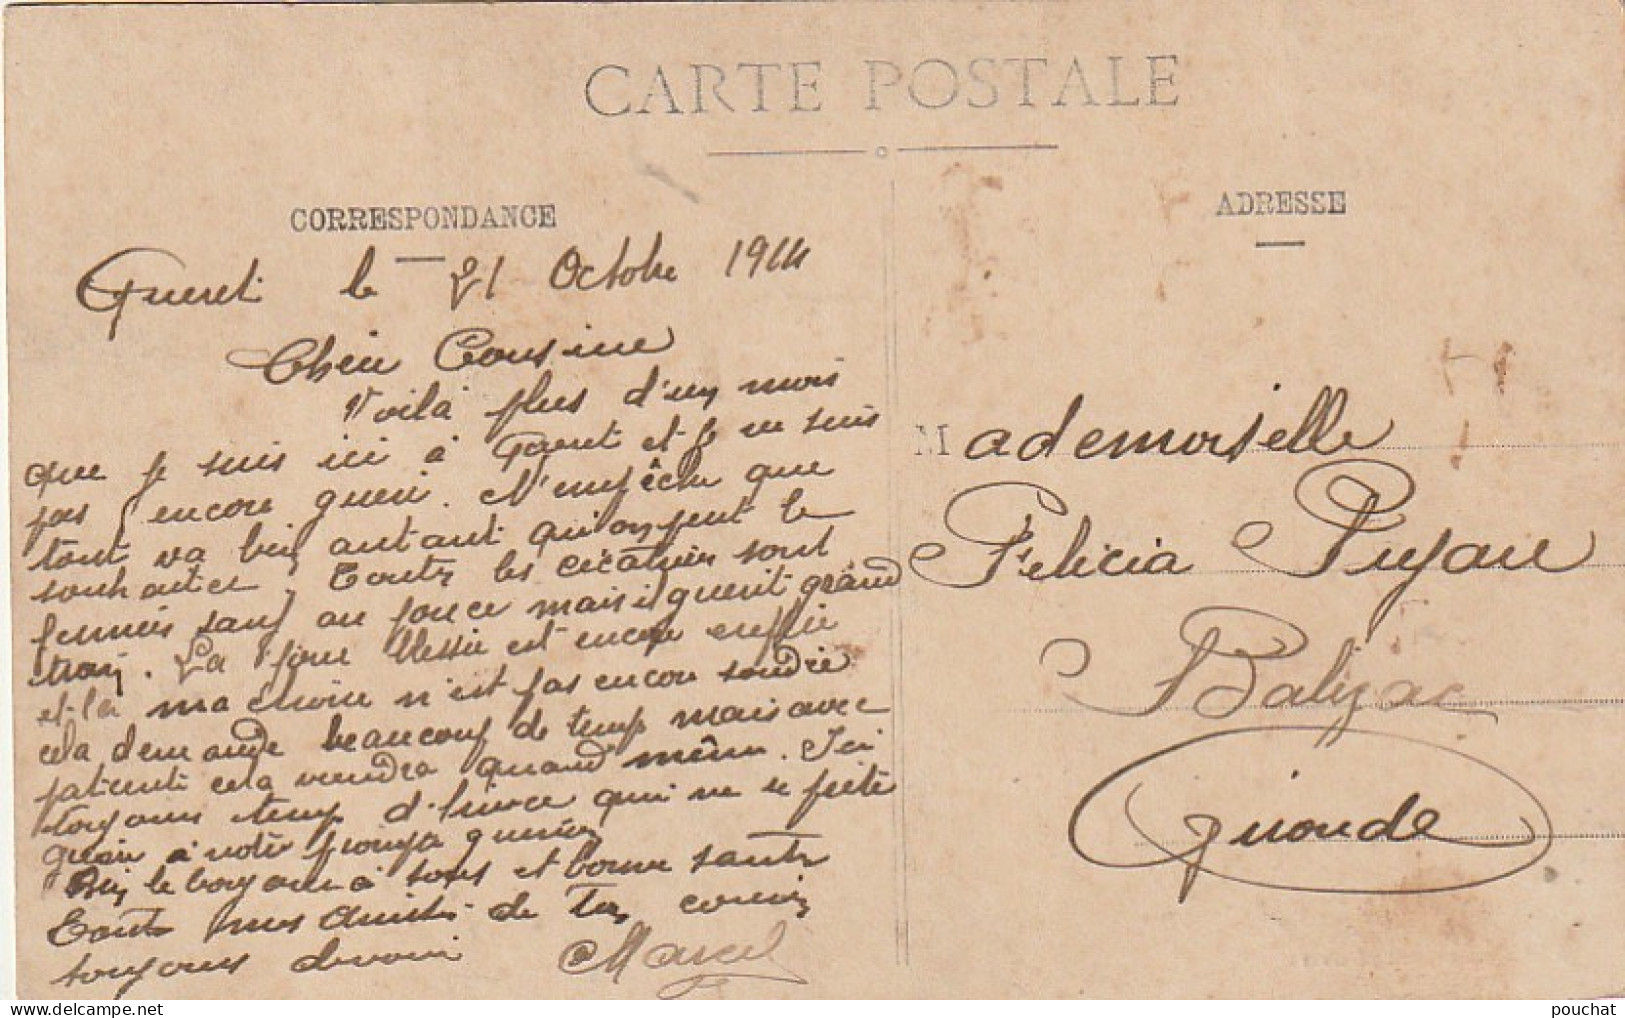 CARTE POSTALE
CORRESPONDANCE
ADRESSE
Gueret le 21 Octobre 1914
Cher Cousine
Voilà plus d'un mois
que je suis ici à Gueret et je ne suis
pas encore gueri. N'empêche que
tout va bien autant qu'on peut le
souhaiter. Toutes les cicatrices sont
fermées sauf au pouce mais il guerit grand
train. La joue blessée est encore enflée
et la machoire n'est pas encore soudée
cela demande beaucoup de temps mais avec
patience cela viendra quand même. Ici
toujours temps d'hiver qui ne se prète
guère à notre guérison
Bien le bonjour à tous et bonne santé
Toutes mes amitiés de Ton cousin
toujours devoué Marcel
Mademoiselle
Felicia Pujau
Balizac
Gironde
pouchat